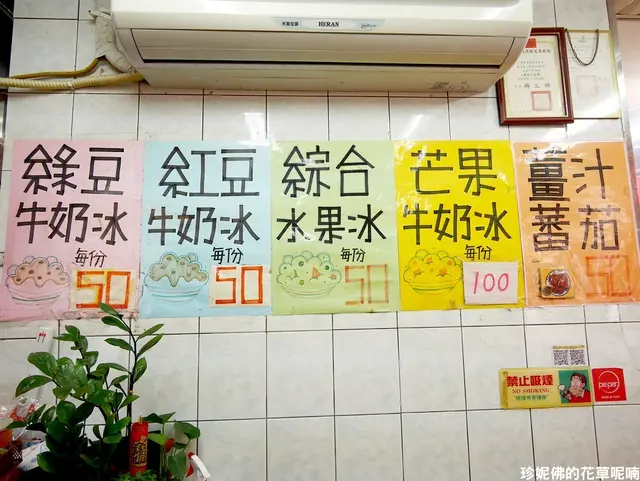 HERAN
綠豆
牛奶冰
每份
50
紅豆
牛奶冰
每份
50
綜合
水果冰
每份
50
芒果
牛奶冰
每份
100
薑汁
蕃茄
50
禁止吸煙
NO SMOKING
珍妮佛的花草呢喃